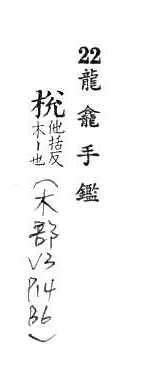 22 龍龕手鑑
梲 他括反
木丨也
(木部
V3
P14
B6)